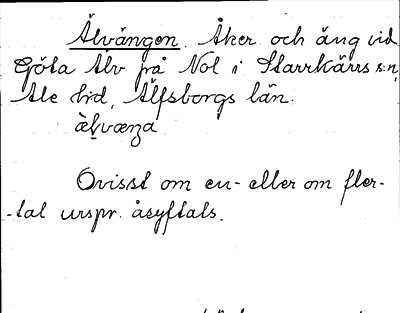 Älvängen. Åker och äng vid
Göta Älv på Nol i Starrkärrs s:n,
Ale hd, Älfsborgs län.
Ovisst om en- eller om fler-
-tal urspr. åsyftats.